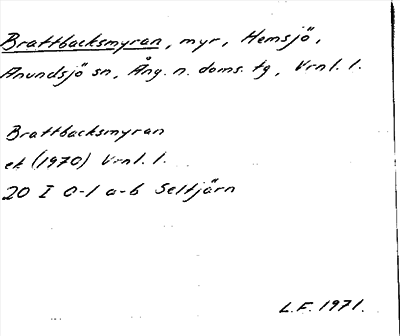 Brattbacksmyran, myr, Hemsjö,
Anundsjö sn, Ång. n. doms. tg, Vrnl. l.
Brattbacksmyran
ek (1970) Vrnl. l.
20 I 0-1 a-b Seltjärn
L.F. 1971.